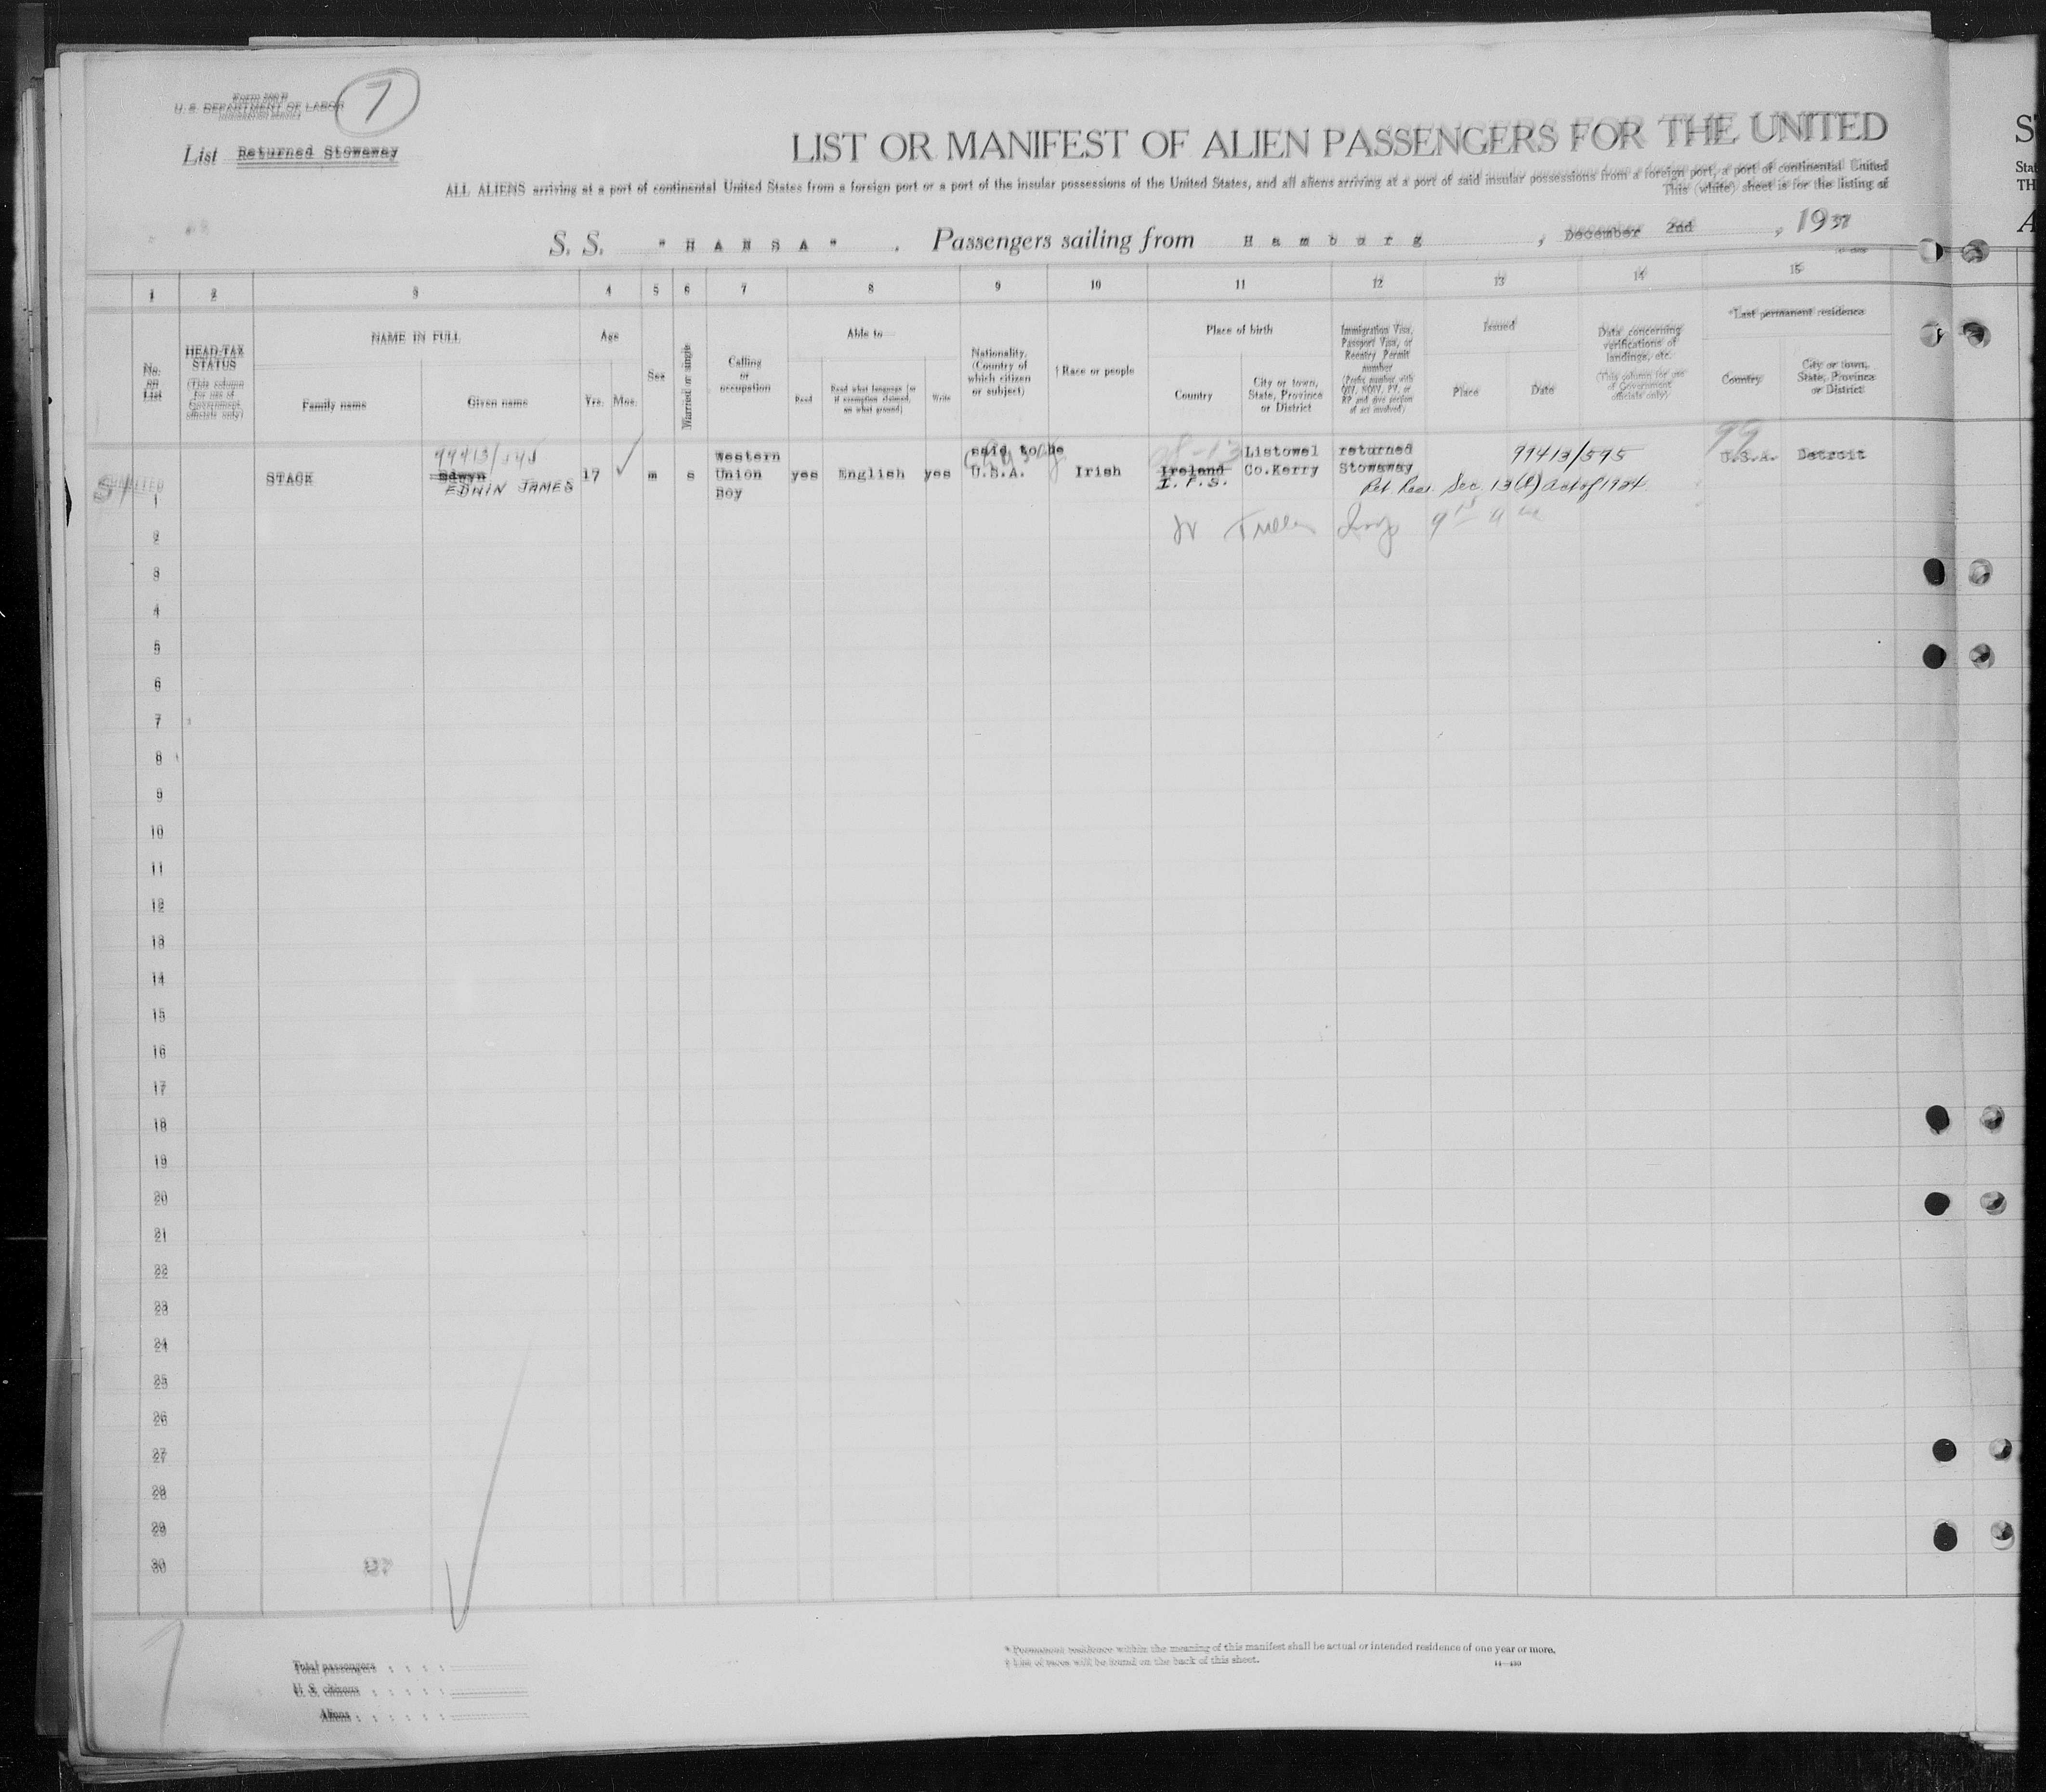 Form 500 B
U. S. DEPARTMENT OF LABOR
IMMIGRATION SERVICE
7
List Returned Stowaway
LIST OR MANIFEST OF ALIEN PASSENGERS FOR THE UNITED
ALL ALIENS arriving at a port of continental United States from a foreign port or a port of the insular possessions of the United States, and all aliens arriving at a port of said insular possessions from a foreign port, a port of continental United
This (white) sheet is for the listing of
S. S. "HANSA" , Passengers sailing from Hamburg , December 2nd , 1937
1 2 3 4 5 6 7 8 9 10 11 12 13 14 15
No. on List
HEAD-TAX STATUS
(This column for use of Government officials only)
NAME IN FULL
Family name
Given name
Age
Yrs. Mos.
Sex
Married or single
Calling or occupation
Able to—
Read
Read what language [or if exemption claimed, on what ground]
Write
Nationality. (Country of which citizen or subject)
† Race or people
Place of birth
Country
City or town, State, Province or District
Immigration Visa, Passport Visa, or Reentry Permit number
(Prefix number with QIV, NQIV, PV, or RP and give section of act involved)
Issued
Place
Date
Data concerning verifications of landings, etc.
(This column for use of Government officials only)
*Last permanent residence
Country
City or town, State, Province or District
99413/595 99
1 STACK Edwyn 17 m s Western Union Boy yes English yes said to be U.S.A. Irish Ireland Listowel Co.Kerry returned Stowaway 99413/595 U.S.A. Detroit
EDWIN JAMES
I.F.S.
Ret. Res. Sec 13(b) Act of 1924
2
3
4
5
6
7
8
9
10
11
12
13
14
15
16
17
18
19
20
21
22
23
24
25
26
27
28
29
30
* Permanent residence within the meaning of this manifest shall be actual or intended residence of one year or more.
† List of races will be found on the back of this sheet.
Total passengers
U. S. citizens
Aliens